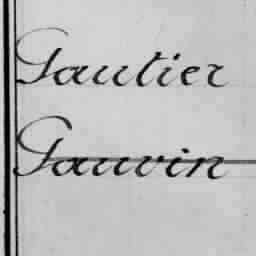 Gautier
Gauvin